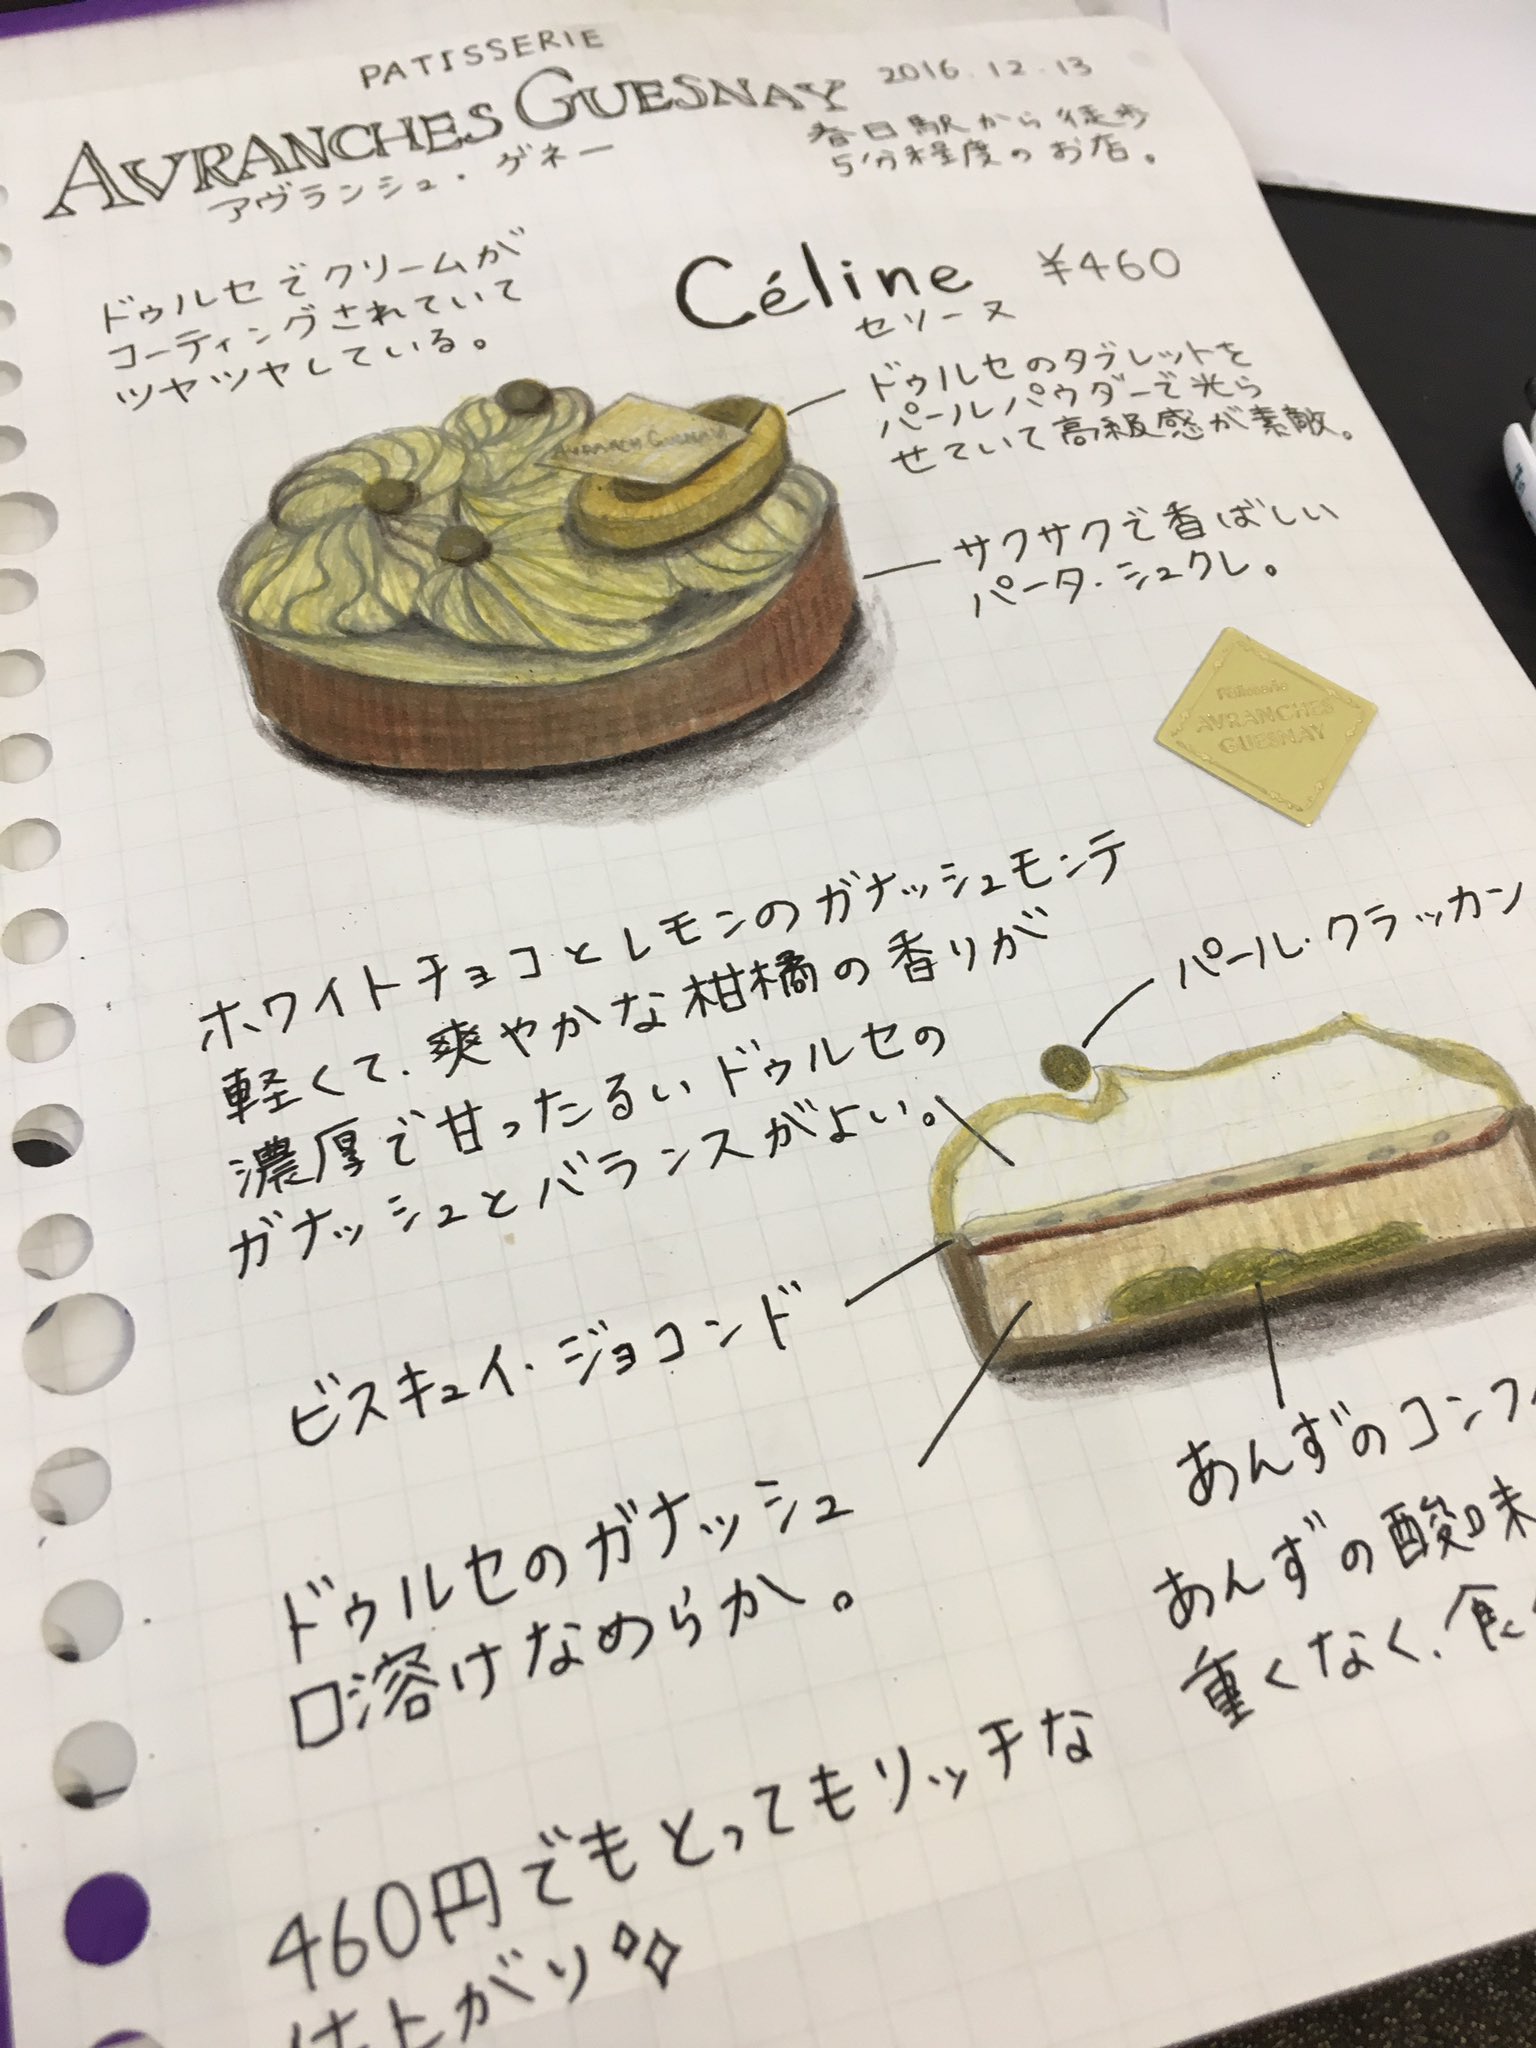 PATISSERIE
AVRANCHES GUESNAY
アヴランシュ・ゲネー
2016.12.13
春日駅から徒歩
5分程度のお店。
Céline ¥460
セリーヌ
ドゥルセでクリームが
コーティングされていて
ツヤツヤしている。
ドゥルセのタブレットを
パールパウダーで光ら
せていて高級感が素敵。
AVRANCH GUESNAY
サクサクで香ばしい
パータ・シュクレ。
Pâtisserie
AVRANCHES
GUESNAY
ホワイトチョコとレモンのガナッシュモンテ
軽くて、爽やかな柑橘の香りが
濃厚で甘ったるいドゥルセの
ガナッシュとバランスがよい。
パール・クラッカン
ビスキュイ・ジョコンド
ドゥルセのガナッシュ
口溶けなめらか。
あんずのコンフィ
あんずの酸味
重くなく、食
460円でもとってもリッチな
仕上がり